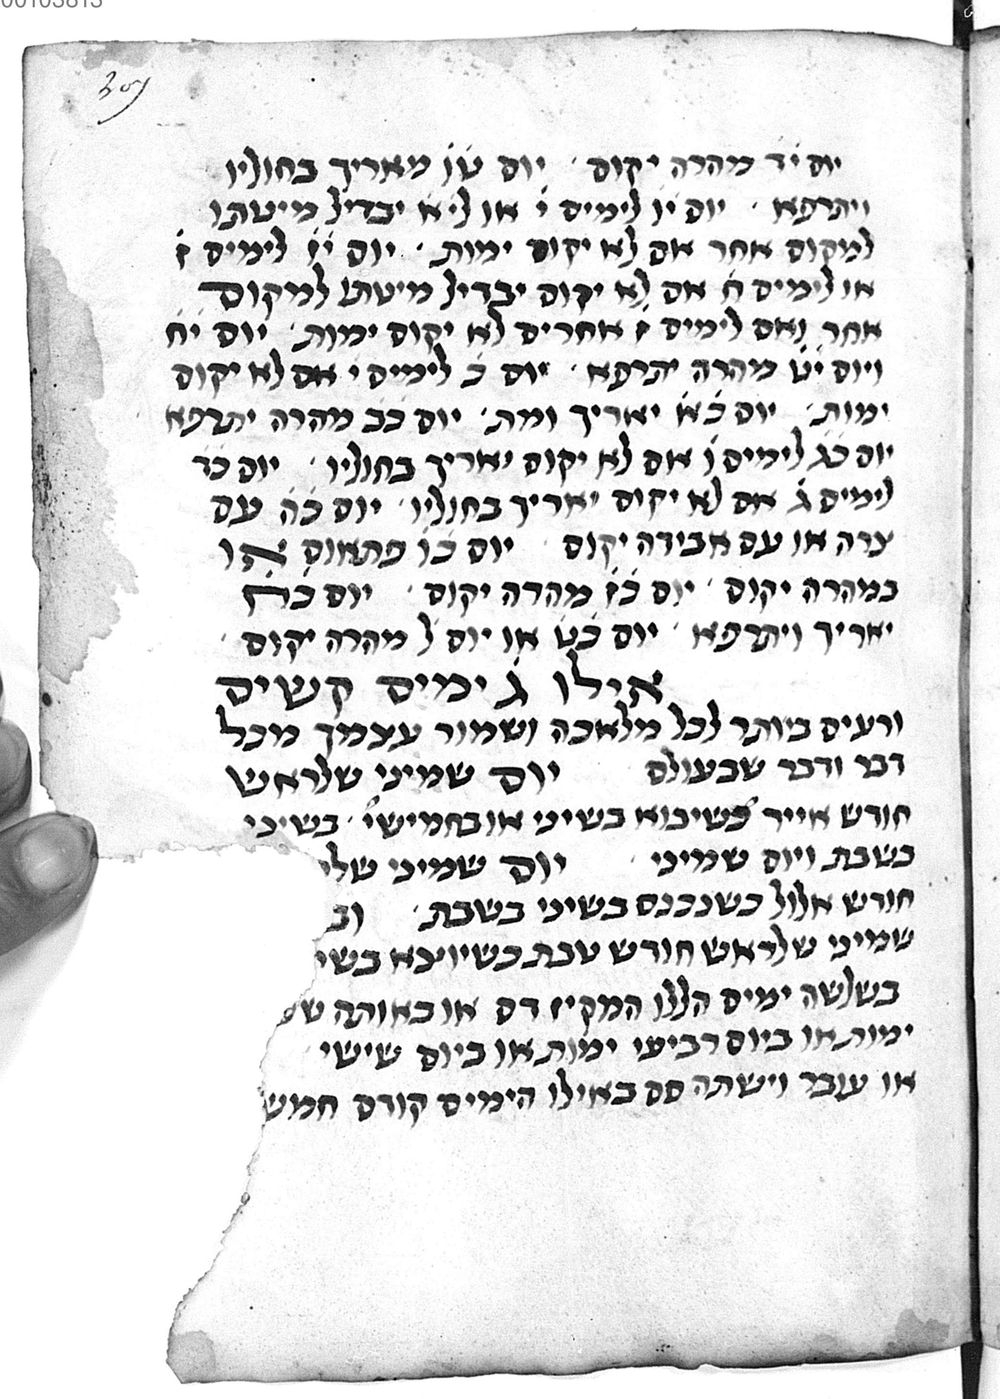 00103813
יום יד מהרה יקום יום טו מאריך בחוליו
ויתרפא יום יו לימים י או לי״א יבדיל מיטתו
למקום אחר אם לא יקום ימות יום יז לימים ז
או לימים ח אם לא יקום יבדיל מיטתו למקום
אחר ואם לימים ז אחרים לא יקום ימות יום יח
ויום יט מהרה יתרפא יום כ לימים י אם לא יקום
ימות יום כא יאריך ומת יום כב מהרה יתרפא
יום כג לימים ו אם לא יקום יאריך בחוליו יום כד
לימים ג אם לא יקום יאריך בחוליו יום כה עם
צרה או עם אבידה יקום יום כו פתאום או
במהרה יקום יום כז מהרה יקום יום כח
יאריך ויתרפא יום כט או יום ל מהרה יקום
אילו ג ימים קשים
ורעים ביותר לכל מלאכה ושמור עצמך מכל
דבר ודבר שבעולם יום שמיני שלראש
חורש אייר כשיבוא בשיני או בחמישי בשיני
בשבת ויום שמיני יום שמיני של
חורש אלול כשנכנס בשיני בשבת
שמיני שלראש חורש טבת כשיוצא בשי
בשלשה ימים הללו המקיז דם או באותה
ימות או ביום רביעי ימות או ביום שישי
או עובר וישתה סם באילו הימים קודם חמש